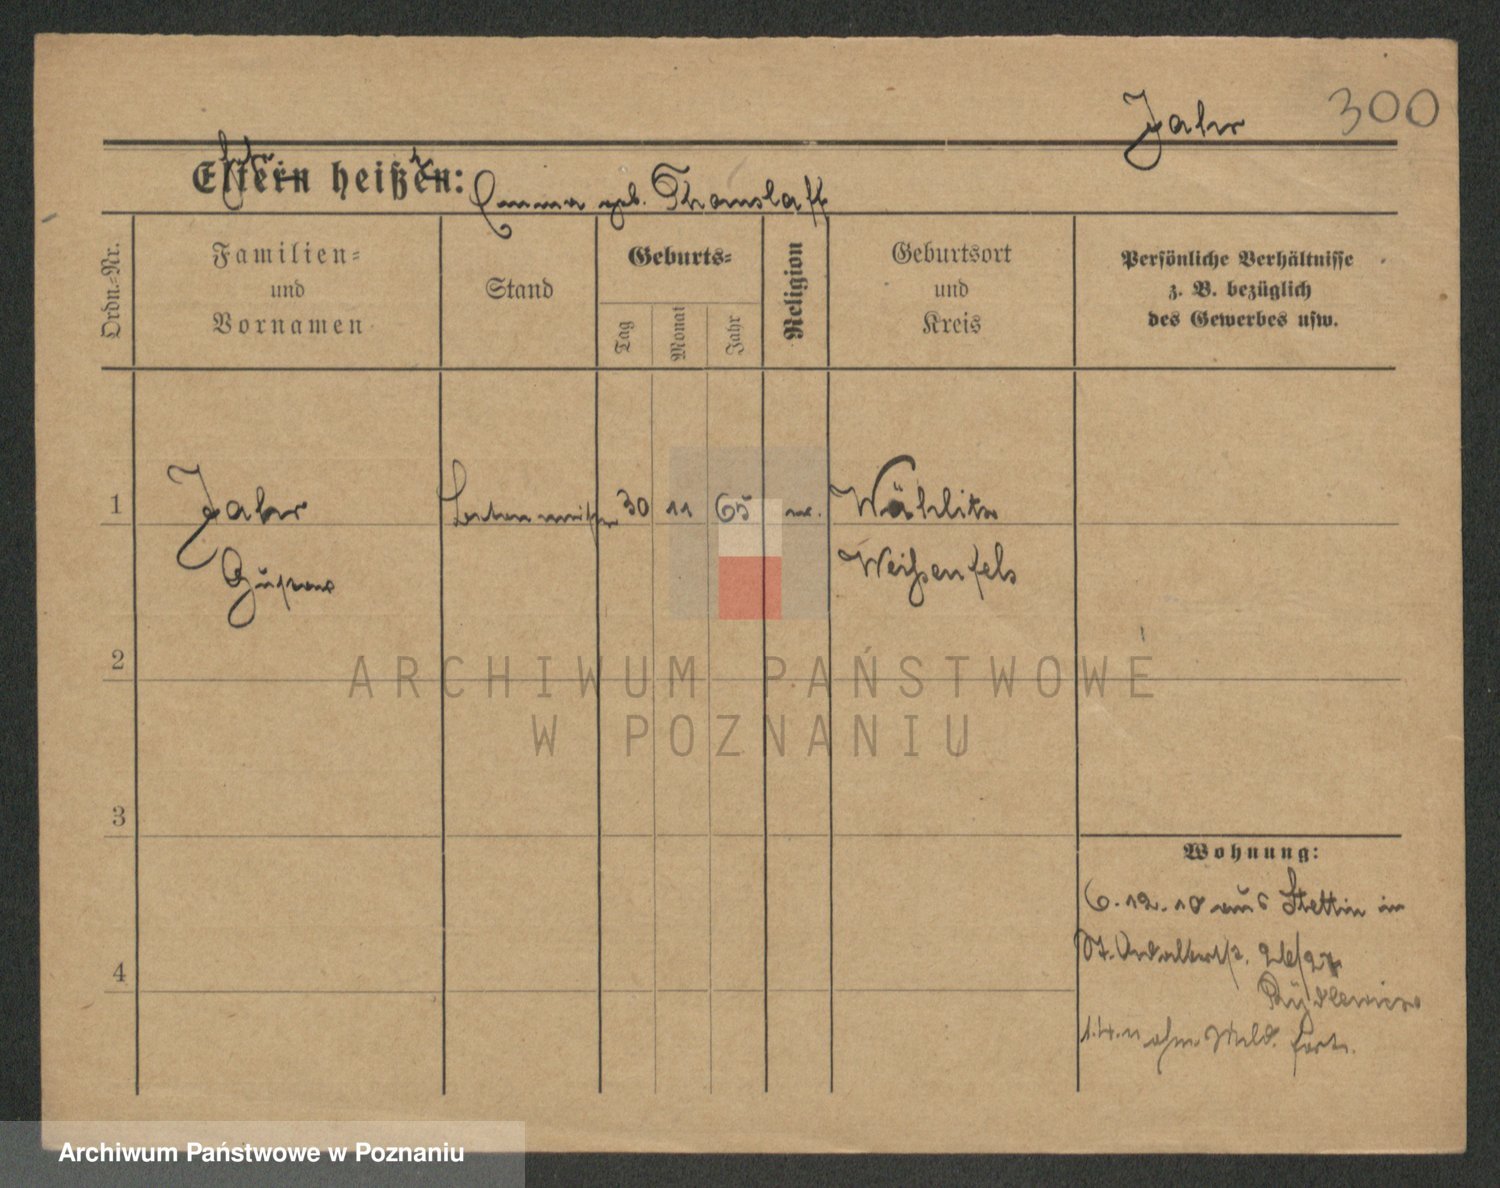 Jahr 300
Eltern heißen: Emma geb. Thomslaff
Ordn.-Nr.
Familien-
und
Vornamen
Stand
Geburts-
Tag
Monat
Jahr
Religion
Geburtsort
und
Kreis
Persönliche Verhältnisse
z. B. bezüglich
des Gewerbes usw.
1 Jahr 30 11 65 Wählitz
Gustav Weißenfels
2
ARCHIWUM PAŃSTWOWE
W POZNANIU
3
Wohnung:
6.12.10 aus Stettin in
St. Adalbertstr. 26/27
4
1.4.11 ohne Meld. fort.
Archiwum Państwowe w Poznaniu